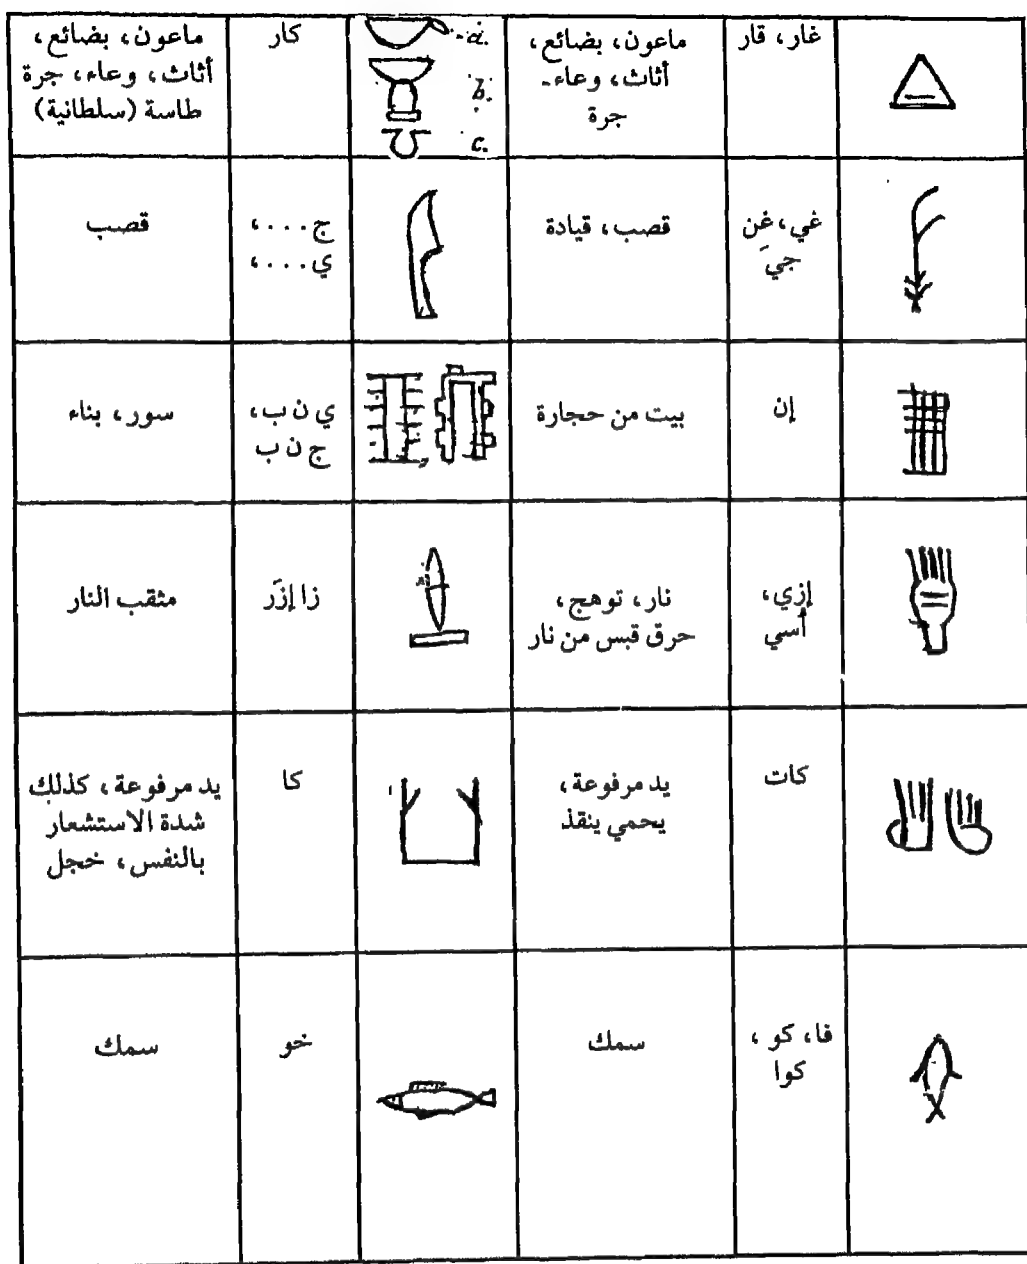 غار، قار
ماعون، بضائع،
أثاث، وعاء۔
جرة
a.
b.
c.
كار
ماعون، بضائع،
أثاث، وعاء، جرة
طاسة (سلطانية)
غي، غن
جيَ
قصب، قيادة
ج...،
ي...،
قصب
إن
بيت من حجارة
ي ن ب،
ج ن ب
سور، بناء
إزي،
أسي
نار، توهج،
حرق قبس من نار
زا إزَر
مثقب النار
كات
يد مرفوعة،
يحمي ينقذ
كا
يد مرفوعة، كذلك
شدة الاستشعار
بالنفس، خجل
فا، كو،
كوا
سمك
خو
سمك